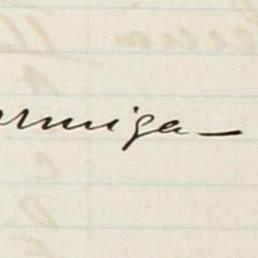 ormiga—